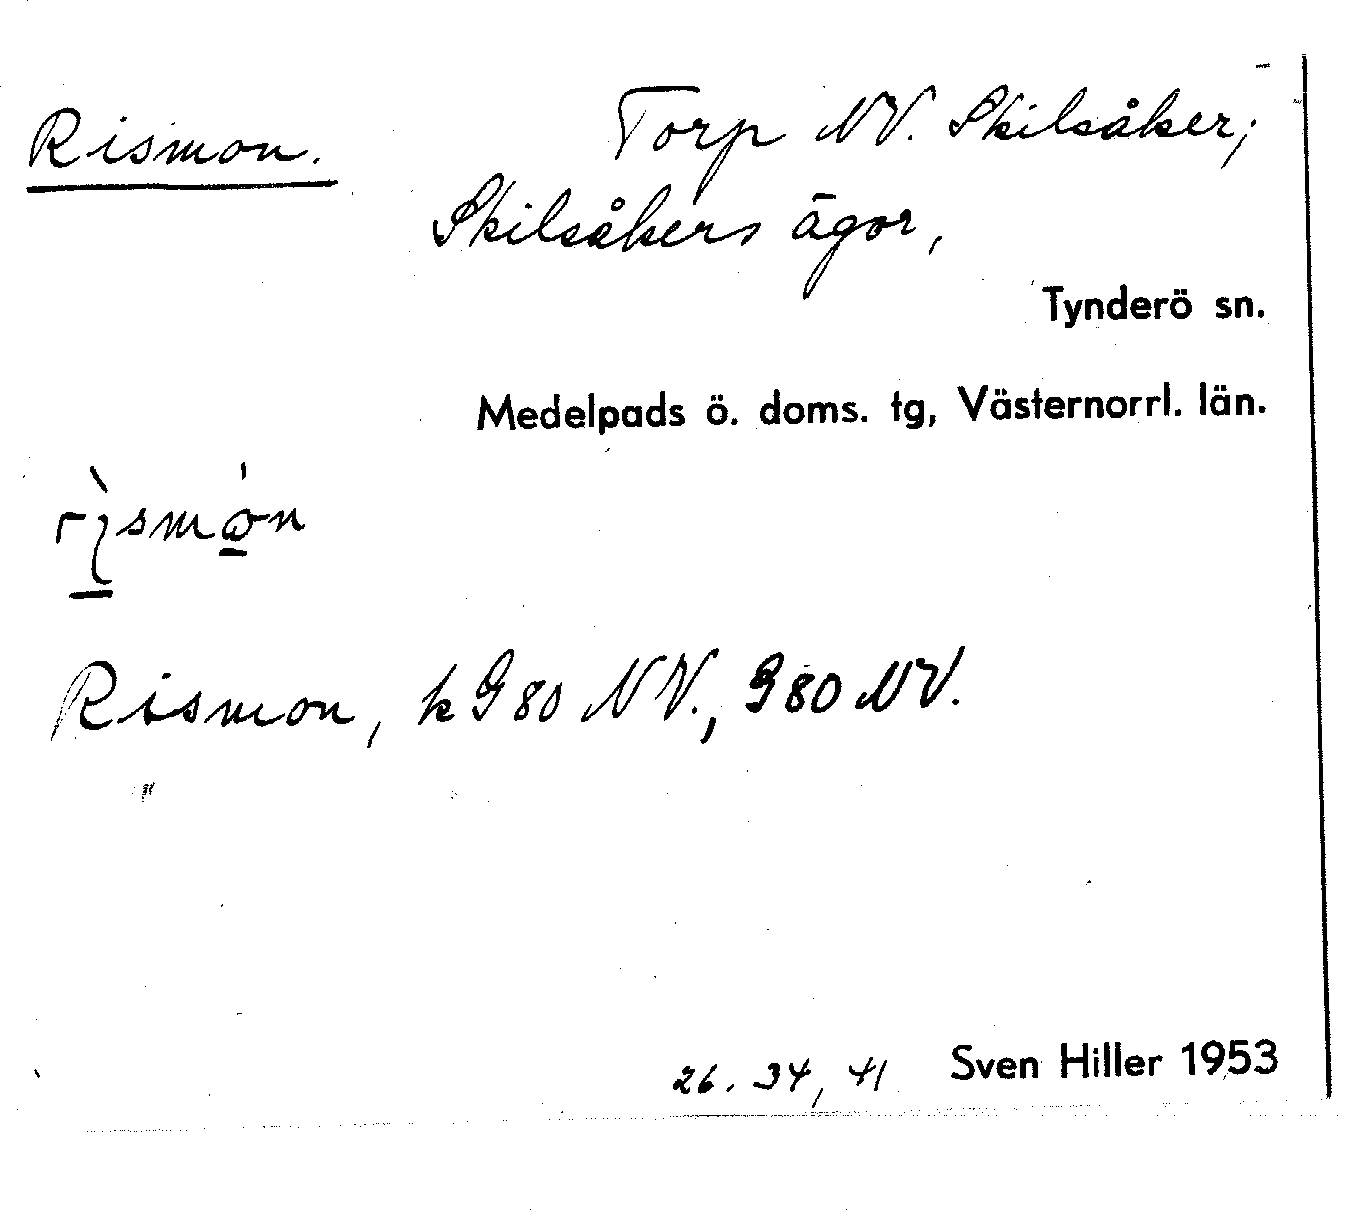 Rismon. Torp NV. Skilsåker;
Skilsåkers ägor,
Tynderö sn.
Medelpads ö. doms. tg, Västernorrl. län.
Rismon, k G 80 NV., G 80 NV.
26. 34, 41 Sven Hiller 1953